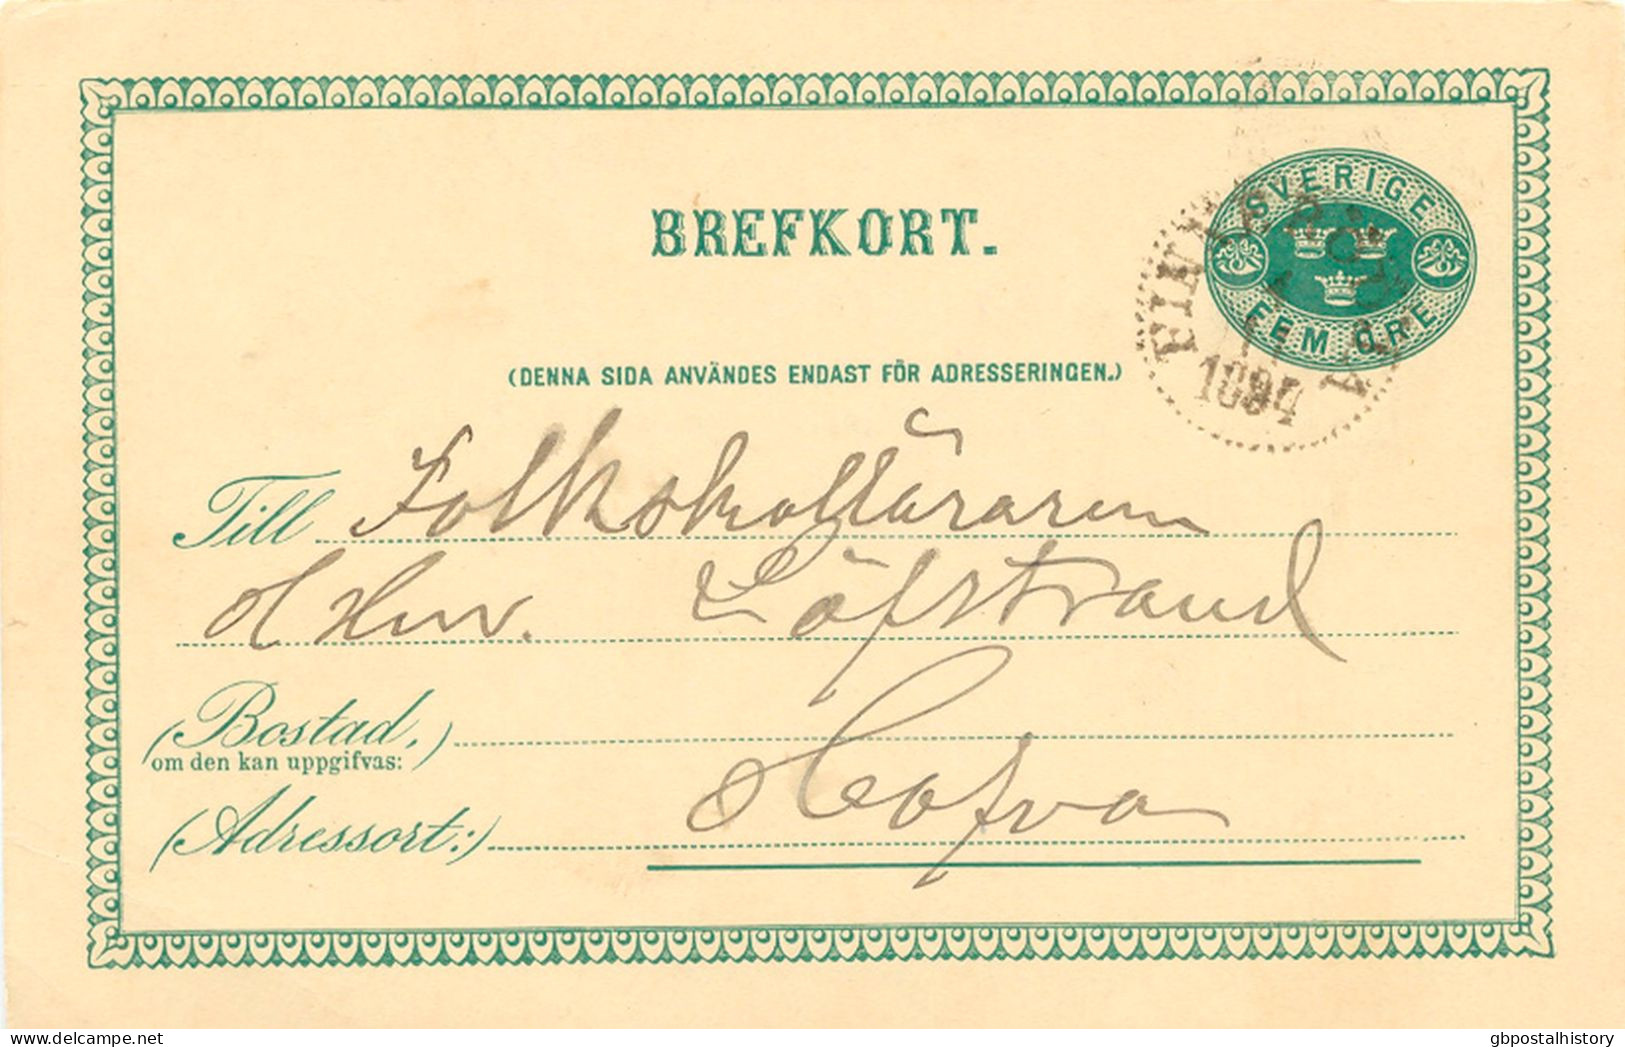 BREFKORT.
SVERIGE
FEM ÖRE
1894
(DENNA SIDA ANVÄNDES ENDAST FÖR ADRESSERINGEN.)
Till Folkskolläraren
Löfstrand
(Bostad,)
om den kan uppgifvas:
Hofva
(Adressort:)
gbpostalhistory